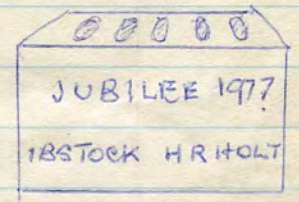 JUBILEE 1977
IBSTOCK HR HOLT